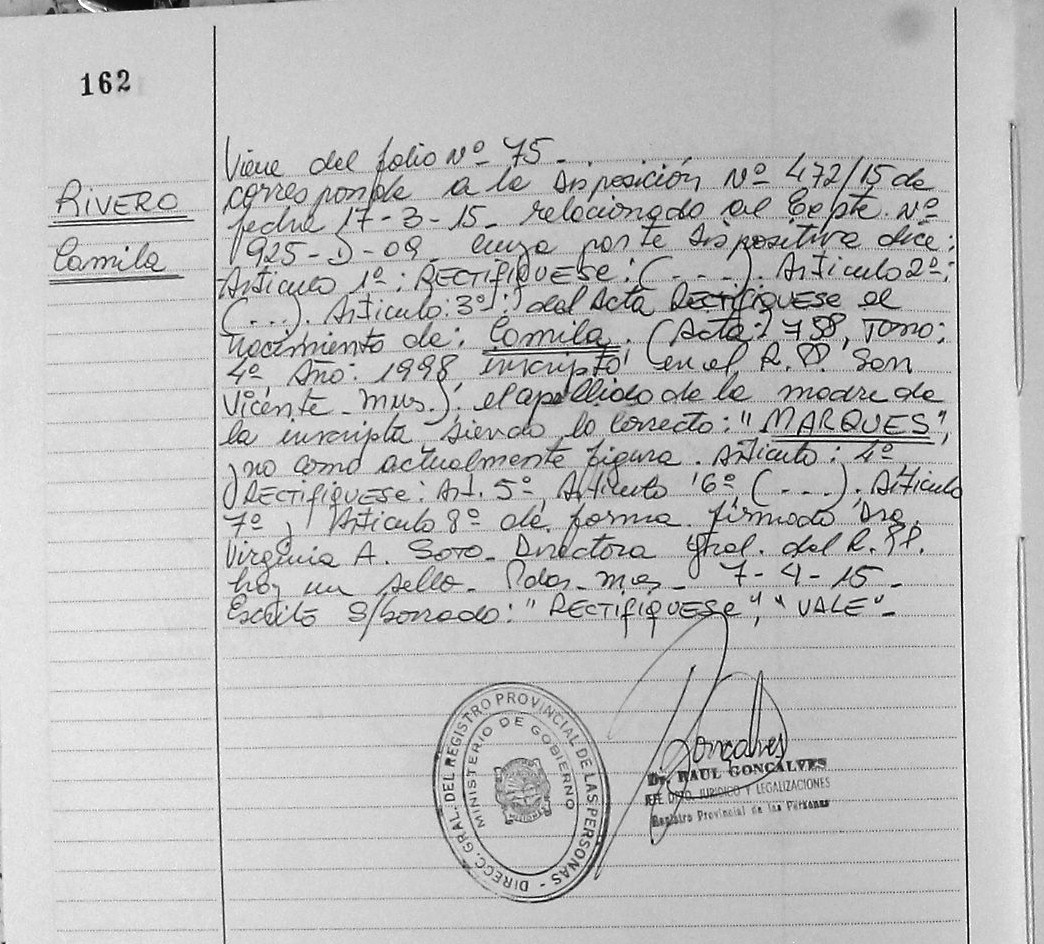 162
RIVERO
Camila
Viene del folio Nº 75-
corresponde a la disposición Nº 472/15 de
fecha 17-3-15- relacionado al Expte. Nº
1925-D-09. cuya parte dispositiva dice:
Artículo 1º: RECTIFIQUESE: (...). Artículo 2º:
(...). Artículo: 3º: del Acta RECTIFIQUESE el
nacimiento de: Camila. (Acta: 758, Tomo:
4º, Año: 1998, inscripto en el R.P. San
Vicente- mns.): el apellido de la madre de
la inscripta, siendo lo correcto: "MARQUES",
y no como actualmente figura. Artículo: 4º
RECTIFIQUESE: Art. 5º, Artículo 6º, (...). Artículo
7º y Artículo 8º de forma. firmado Dra.
Virginia A. Soto- Directora Gral. del R.P.P.
hay un sello- Pdas- mns- 7-4-15-
Escrito S/borrado: "RECTIFIQUESE", "VALE"-
DIRECC. GRAL. DEL REGISTRO PROVINCIAL DE LAS PERSONAS -
MINISTERIO DE GOBIERNO
MISIONES
Goncalves
Dr. RAUL GONCALVES
JEFE DPTO. JURIDICO Y LEGALIZACIONES
Registro Provincial de las Personas